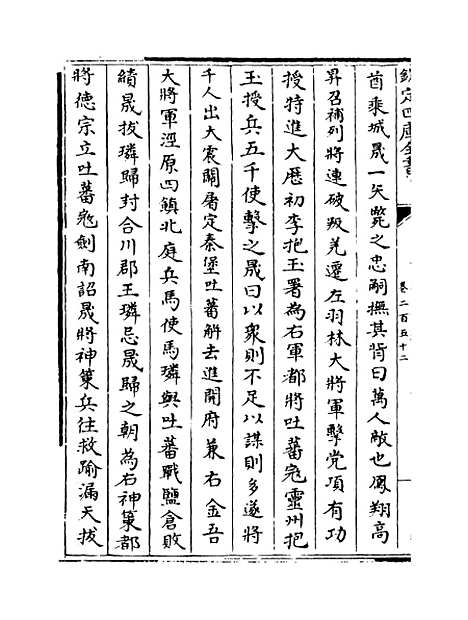 欽定四庫全書
卷二百五十二
酋乘城晟一矢斃之忠嗣撫其背曰萬人敵也鳳翔高
昇召補列將連破叛羌遷左羽林大將軍擊党項有功
授特進大厯初李抱玉署為右軍都將吐蕃宼靈州抱
玉授兵五千使擊之晟曰以衆則不足以謀則多遂將
千人出大震關屠定秦堡吐蕃解去進開府兼右金吾
大將軍涇原四鎮北庭兵馬使馬璘與吐蕃戰鹽倉敗
績晟拔璘歸封合川郡王璘忌晟歸之朝為右神策都
將德宗立吐蕃宼劍南詔晟將神策兵往救踰漏天拔